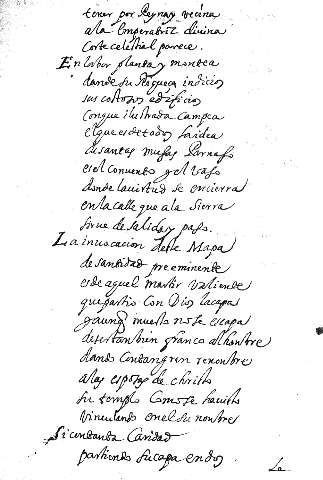 tener por Reyna y vecina
a la Emperatriz diuina
Corte celestial parece.
En labor planta y montea
dando su Riqueça indicios
sus costosos edificios
con que ilustrada campea
el que es de todos la idea
de santas musas Parnaso
es el conuento y el vaso
donde la uirtud se encierra
en la calle que a la sierra
sirue de salida y paso.
La inuocacion deste Mapa
de santidad preeminente
es de aquel martir valiente
que partio con Dios la capa
y aunq muerto no se escapa
de ser tan bien franco al hombre
dando con tan gran renombre
a las esposas de christo
su templo como se ha uisto
vinculando en el su nombre
Si con tanta Caridad
partiendo su capa en dos
La